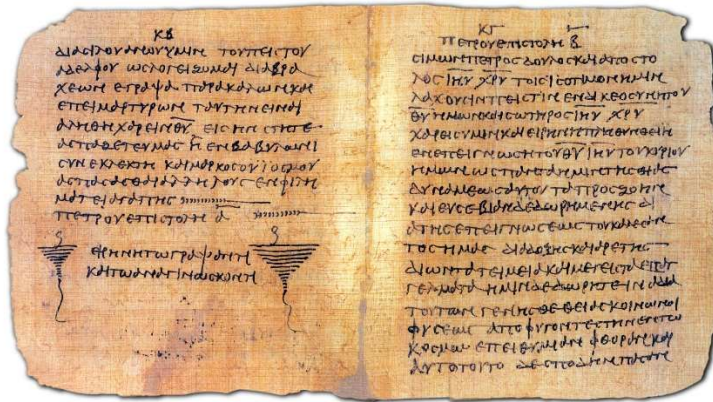 ΚΒ
ΔΙΑ ϹΙΛΟΥΑΝΟΥ ΥΜΙΝ ΤΟΥ ΠΕΙϹΤΟΥ
ΑΔΕΛΦΟΥ ΩϹ ΛΟΓΕΙΖΟΜΑΙ ΔΙΑ ΒΡΑ
ΧΕΩΝ ΕΓΡΑΨΑ ΠΑΡΑΚΑΛΩΝ ΚΑΙ
ΕΠΕΙΜΑΡΤΥΡΩΝ ΤΑΥΤΗΝ ΕΙΝΑΙ
ΑΛΗΘΗ ΧΑΡΕΙΝ Θ̅Υ̅ ΕΙϹ ΗΝ ϹΤΗΤΕ
ΑϹΠΑΖΕΤΕ ΥΜΑϹ Η ΕΝ ΒΑΒΥΛΩΝΙ
ϹΥΝΕΚΛΕΚΤΗ ΚΑΙ ΜΑΡΚΟϹ Ο ΥΙΟϹ ΜΟΥ
ΑϹΠΑϹΑϹΘΕ ΑΛΛΗΛΟΥϹ ΕΝ ΦΙΛΗ
ΜΑΤΕΙ ΑΓΑΠΗϹ
ΠΕΤΡΟΥ ΕΠΙϹΤΟΛΗ Α̅
ΕΙΡΗΝΗ ΤΩ ΓΡΑΨΑΝΤΙ
ΚΑΙ ΤΩ ΑΝΑΓΙΝΩϹΚΟΝΤΙ
ΚΓ
ΠΕΤΡΟΥ ΕΠΙϹΤΟΛΗ Β̅
ϹΙΜΩΝ ΠΕΤΡΟϹ ΔΟΥΛΟϹ ΚΑΙ ΑΠΟϹΤΟ
ΛΟϹ Ι̅Η̅Υ̅ Χ̅Ρ̅Υ̅ ΤΟΙϹ ΙϹΟΤΙΜΟΝ ΗΜΙΝ
ΛΑΧΟΥϹΙΝ ΠΕΙϹΤΙΝ ΕΝ ΔΙΚΕΟϹΥΝΗ ΤΟΥ
Θ̅Υ̅ ΗΜΩΝ ΚΑΙ ϹΩΤΗΡΟϹ Ι̅Η̅Υ̅ Χ̅Ρ̅Υ̅
ΧΑΡΕΙϹ ΥΜΙΝ ΚΑΙ ΕΙΡΗΝΗ ΠΛΗΘΥΝΘΕΙΗ
ΕΝ ΕΠΕΙΓΝΩϹΗ ΤΟΥ Θ̅Υ̅ Ι̅Η̅Υ̅ ΤΟΥ ΚΥΡΙΟΥ
ΗΜΩΝ ΩϹ ΠΑΝΤΑ ΗΜΙΝ ΤΗϹ ΘΕΙΑϹ
ΔΥΝΑΜΕΩϹ ΑΥΤΟΥ ΤΑ ΠΡΟϹ ΖΩΗΝ
ΚΑΙ ΕΥϹΕΒΙΑΝ ΔΕΔΩΡΗΜΕΝΗϹ ΔΙ
Α ΤΗϹ ΕΠΕΙΓΝΩϹΕΩϹ ΤΟΥ ΚΑΛΕϹΑΝ
ΤΟϹ ΗΜΑϹ ΔΙΑ ΔΟΞΗϹ ΚΑΙ ΑΡΕΤΗϹ
ΔΙ ΩΝ ΤΑ ΤΕΙΜΕΙΑ ΚΑΙ ΜΕΓΕΙϹΤΑ ΕΠΑΓ
ΓΕΛΜΑΤΑ ΗΜΙΝ ΔΕΔΩΡΗΤΕ ΙΝΑ ΔΙΑ
ΤΟΥΤΩΝ ΓΕΝΗϹΘΕ ΘΕΙΑϹ ΚΟΙΝΩΝΟΙ
ΦΥϹΕΩϹ ΑΠΟΦΥΓΟΝΤΕϹ ΤΗΝ ΕΝ ΤΩ
ΚΟϹΜΩ ΕΠΕΙΘΥΜΙΑΝ ΦΘΟΡΑΝ ΚΑΙ
ΑΥΤΟ ΤΟΥΤΟ ΔΕ ϹΠΟΥΔΗΝ ΠΑϹΑΝ